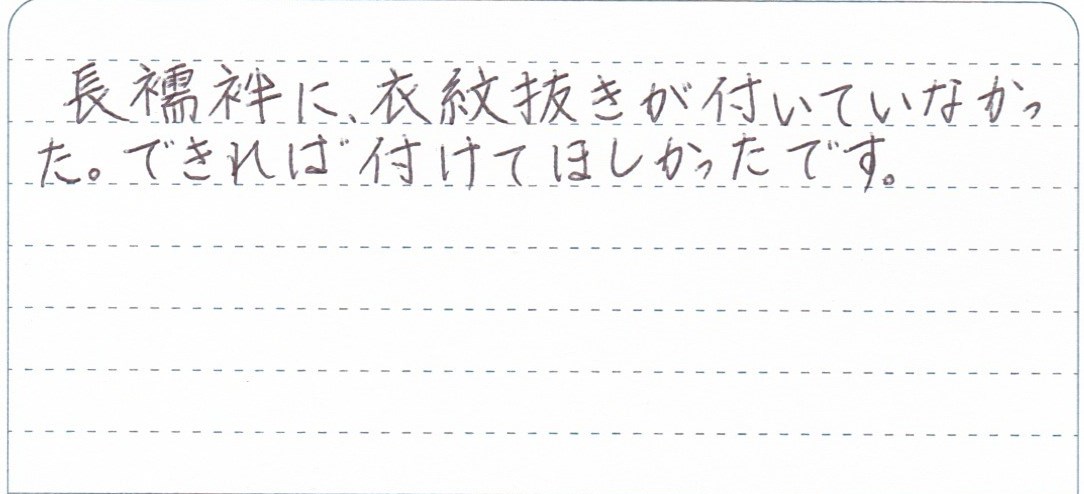 長襦袢に、衣紋抜きが付いていなかっ
た。できれば付けてほしかったです。